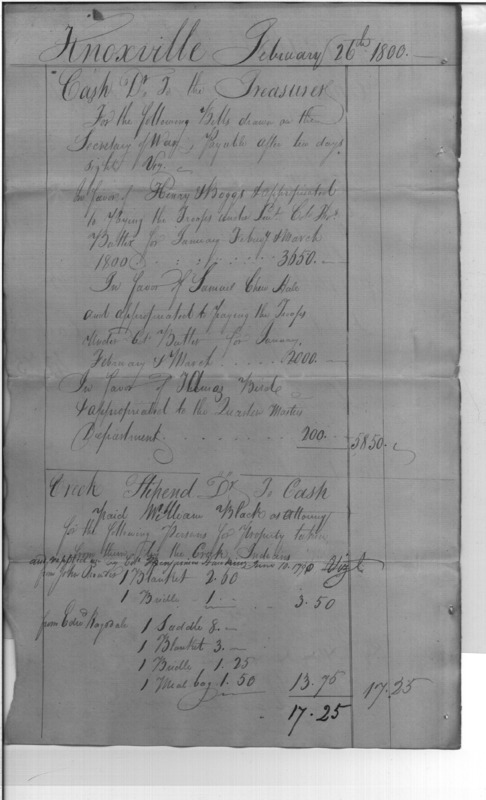 Knoxville February 26th 1800.
Cash Dr. To the Treasurer
For the following Bills drawn on the
Secretary of War, Payable after ten days
sight Viz.
In favor of Henry Boggs & appropriated
to Paying the Troops under Lieut. Col. Thos.
Butler for January Feby & March
1800 3650.
In favor of Samuel
and appropriated to Paying the Troops
under Col. Butler for January,
February & March 2000.
In favor of Thomas
& appropriated to the Quarter Masters
Department 200. 5850.
Creek Stipend Dr. To Cash
Paid William Black as Attorney
for the following Persons for Property taken
from them by the Creek Indians Vizt
from John 1 Blanket 2.50
1 Bridle 1. 3.50
from Edwd Ragsdale 1 Saddle 8.
1 Blanket 3.
1 Bridle 1.25
1 Meal bag 1.50 13.75 17.25
17.25